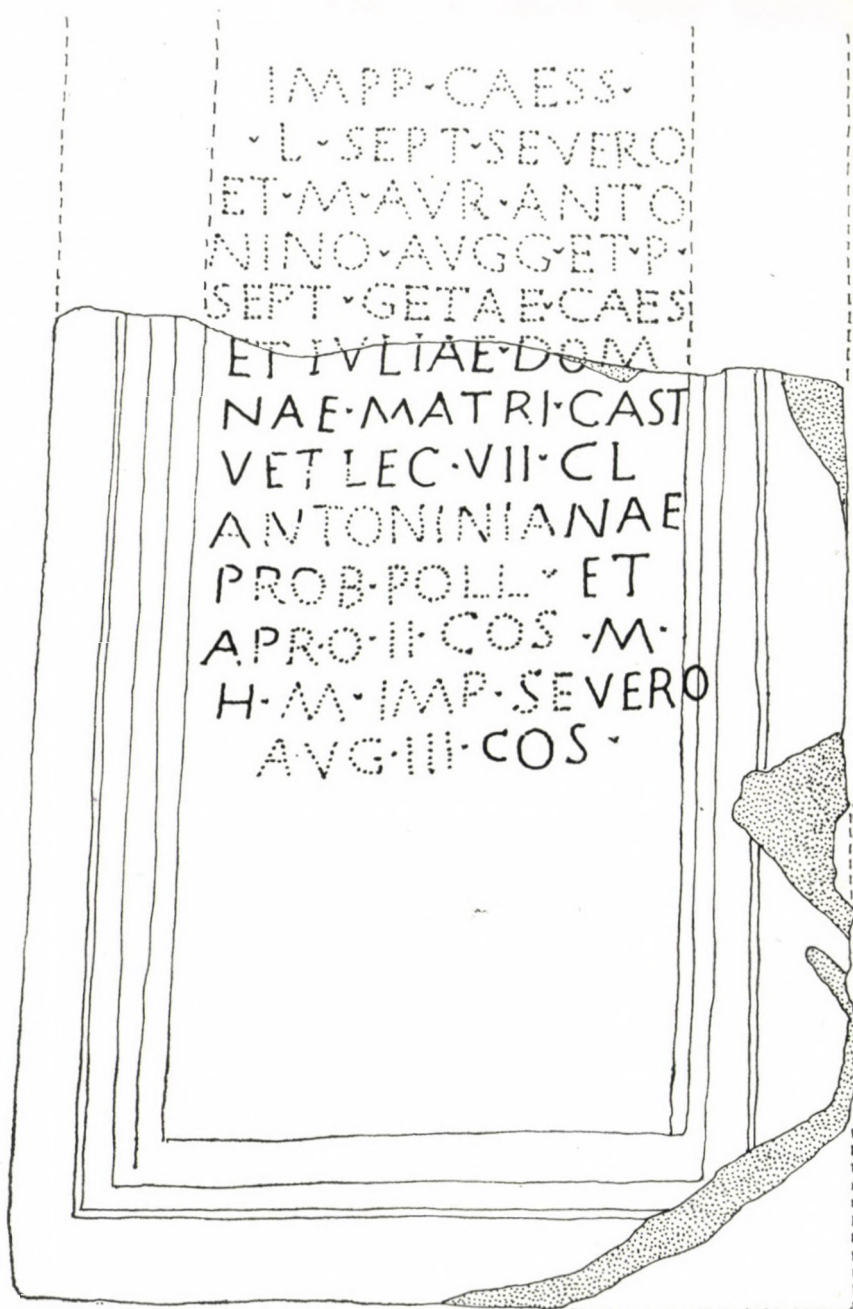 IMPP·CAESS·
·L·SEPT·SEVERO
ET·M·AVR·ANTO
NINO·AVGG·ET·P·
SEPT·GETAE·CAES
ET IVLIAE·DOM
NAE·MATRI·CAST
VET LEC·VII·CL
ANTONINIANAE
PROB·POLL·ET
APRO·II·COS·M·
H·M·IMP·SEVERO
AVG·III·COS·